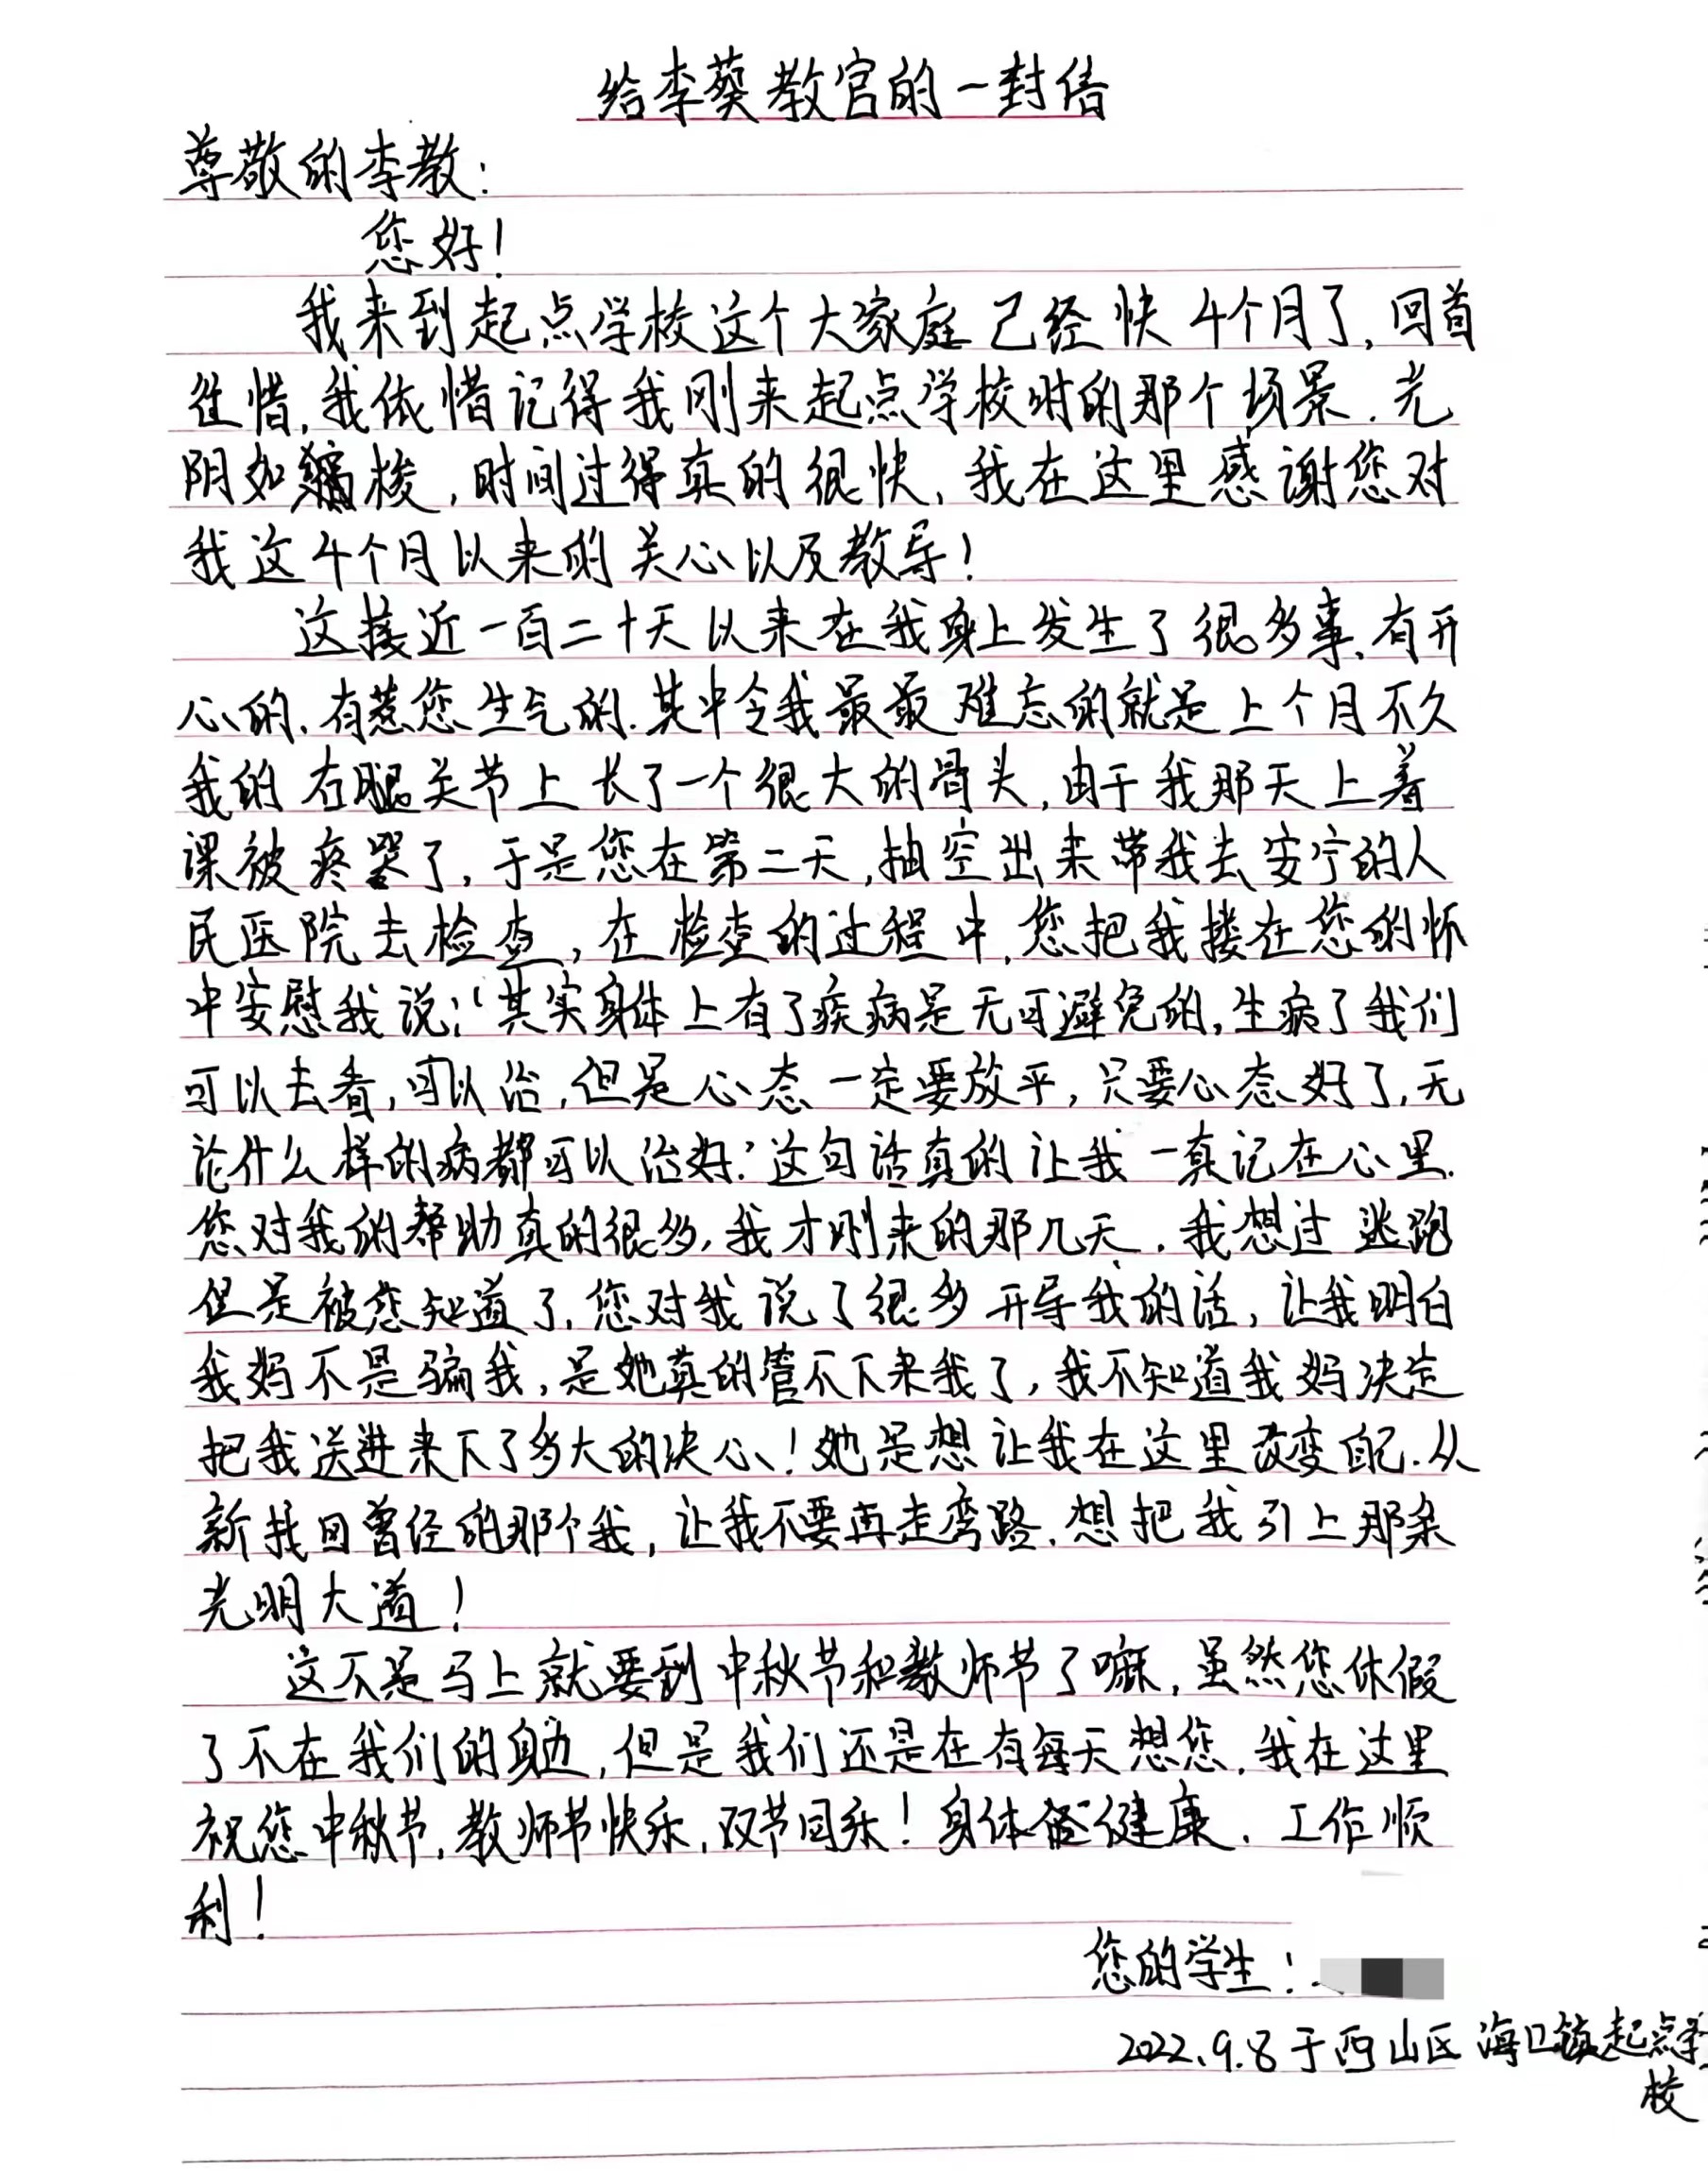 给李葵教官的一封信
尊敬的李教：
您好！
我来到起点学校这个大家庭已经快4个月了，回首
往惜，我依惜记得我刚来起点学校时的那个场景．光
阴如梭，时间过得真的很快，我在这里感谢您对
我这4个月以来的关心以及教导！
这接近一百二十天以来在我身上发生了很多事、有开
心的、有惹您生气的．其中令我最最难忘的就是上个月不久
我的右腿关节上长了一个很大的骨头，由于我那天上着
课被疼哭了，于是您在第二天，抽空出来带我去安宁的人
民医院去检查，在检查的过程中，您把我搂在您的怀
中安慰我说：“其实身体上有了疾病是无可避免的，生病了我们
可以去看，可以治，但是心态一定要放平，只要心态好了，无
论什么样的病都可以治好．”这句话真的让我一真记在心里．
您对我的帮助真的很多，我才刚来的那几天．我想过逃跑
但是被您知道了，您对我说了很多开导我的话，让我明白
我妈不是骗我，是她真的管不下来我了，我不知道我妈决定
把我送进来下了多大的决心！她是想让我在这里改变自己．从
新找回曾经的那个我，让我不要再走弯路．想把我引上那条
光明大道！
这不是马上就要到中秋节和教师节了嘛，虽然您休假
了不在我们的身边，但是我们还是在有每天想您．我在这里
祝您中秋节，教师节快乐，双节同乐！身体健康．工作顺
利！
您的学生：
2022.9.8于西山区海口镇起点学
校